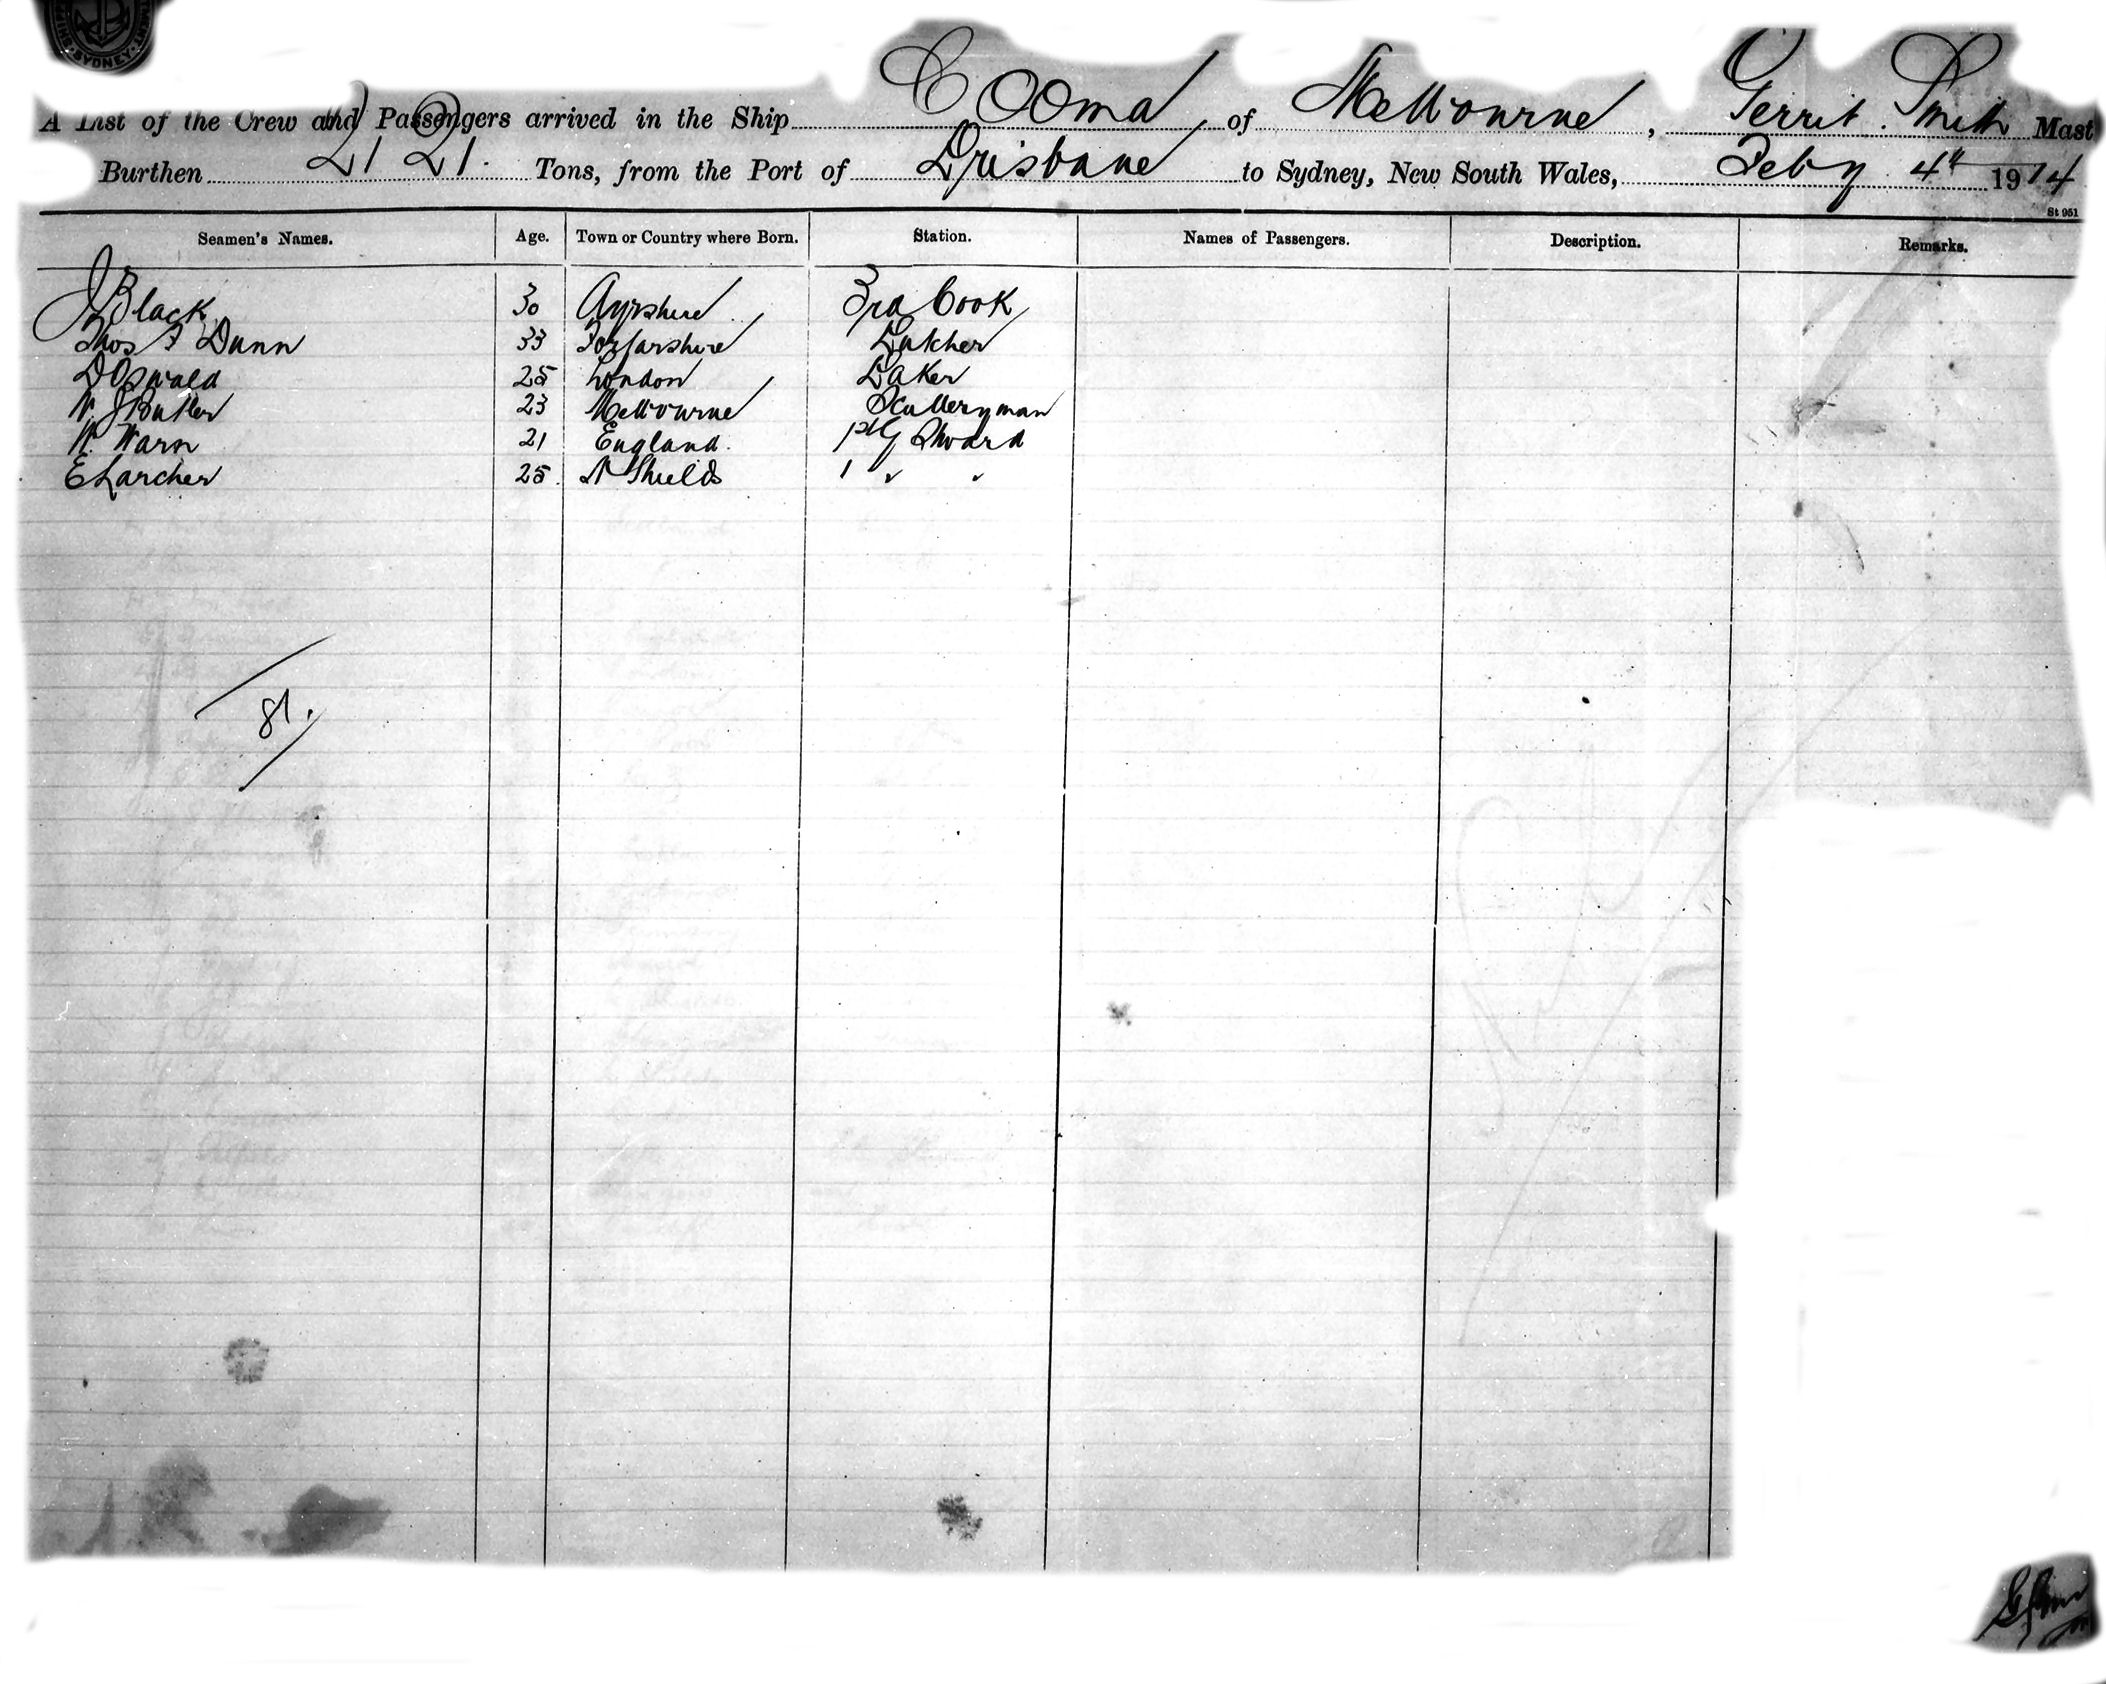 SYDNEY
A List of the Crew and Passengers arrived in the Ship Cooma of Melbourne, Gerrit Smith Mast
Burthen 2121. Tons, from the Port of Brisbane to Sydney, New South Wales, Feby 4th 1914
St 951
Seamen's Names. Age. Town or Country where Born. Station. Names of Passengers. Description. Remarks.
J Black 30 Ayrshire 3rd Cook
Thos F Dunn 33 Forfarshire Butcher
D Oswald 25 London Baker
W. J Butler 23 Melbourne Sculleryman
W. Warn 21 England. Stward
E Larcher 25 N Shields 1 " "
81.